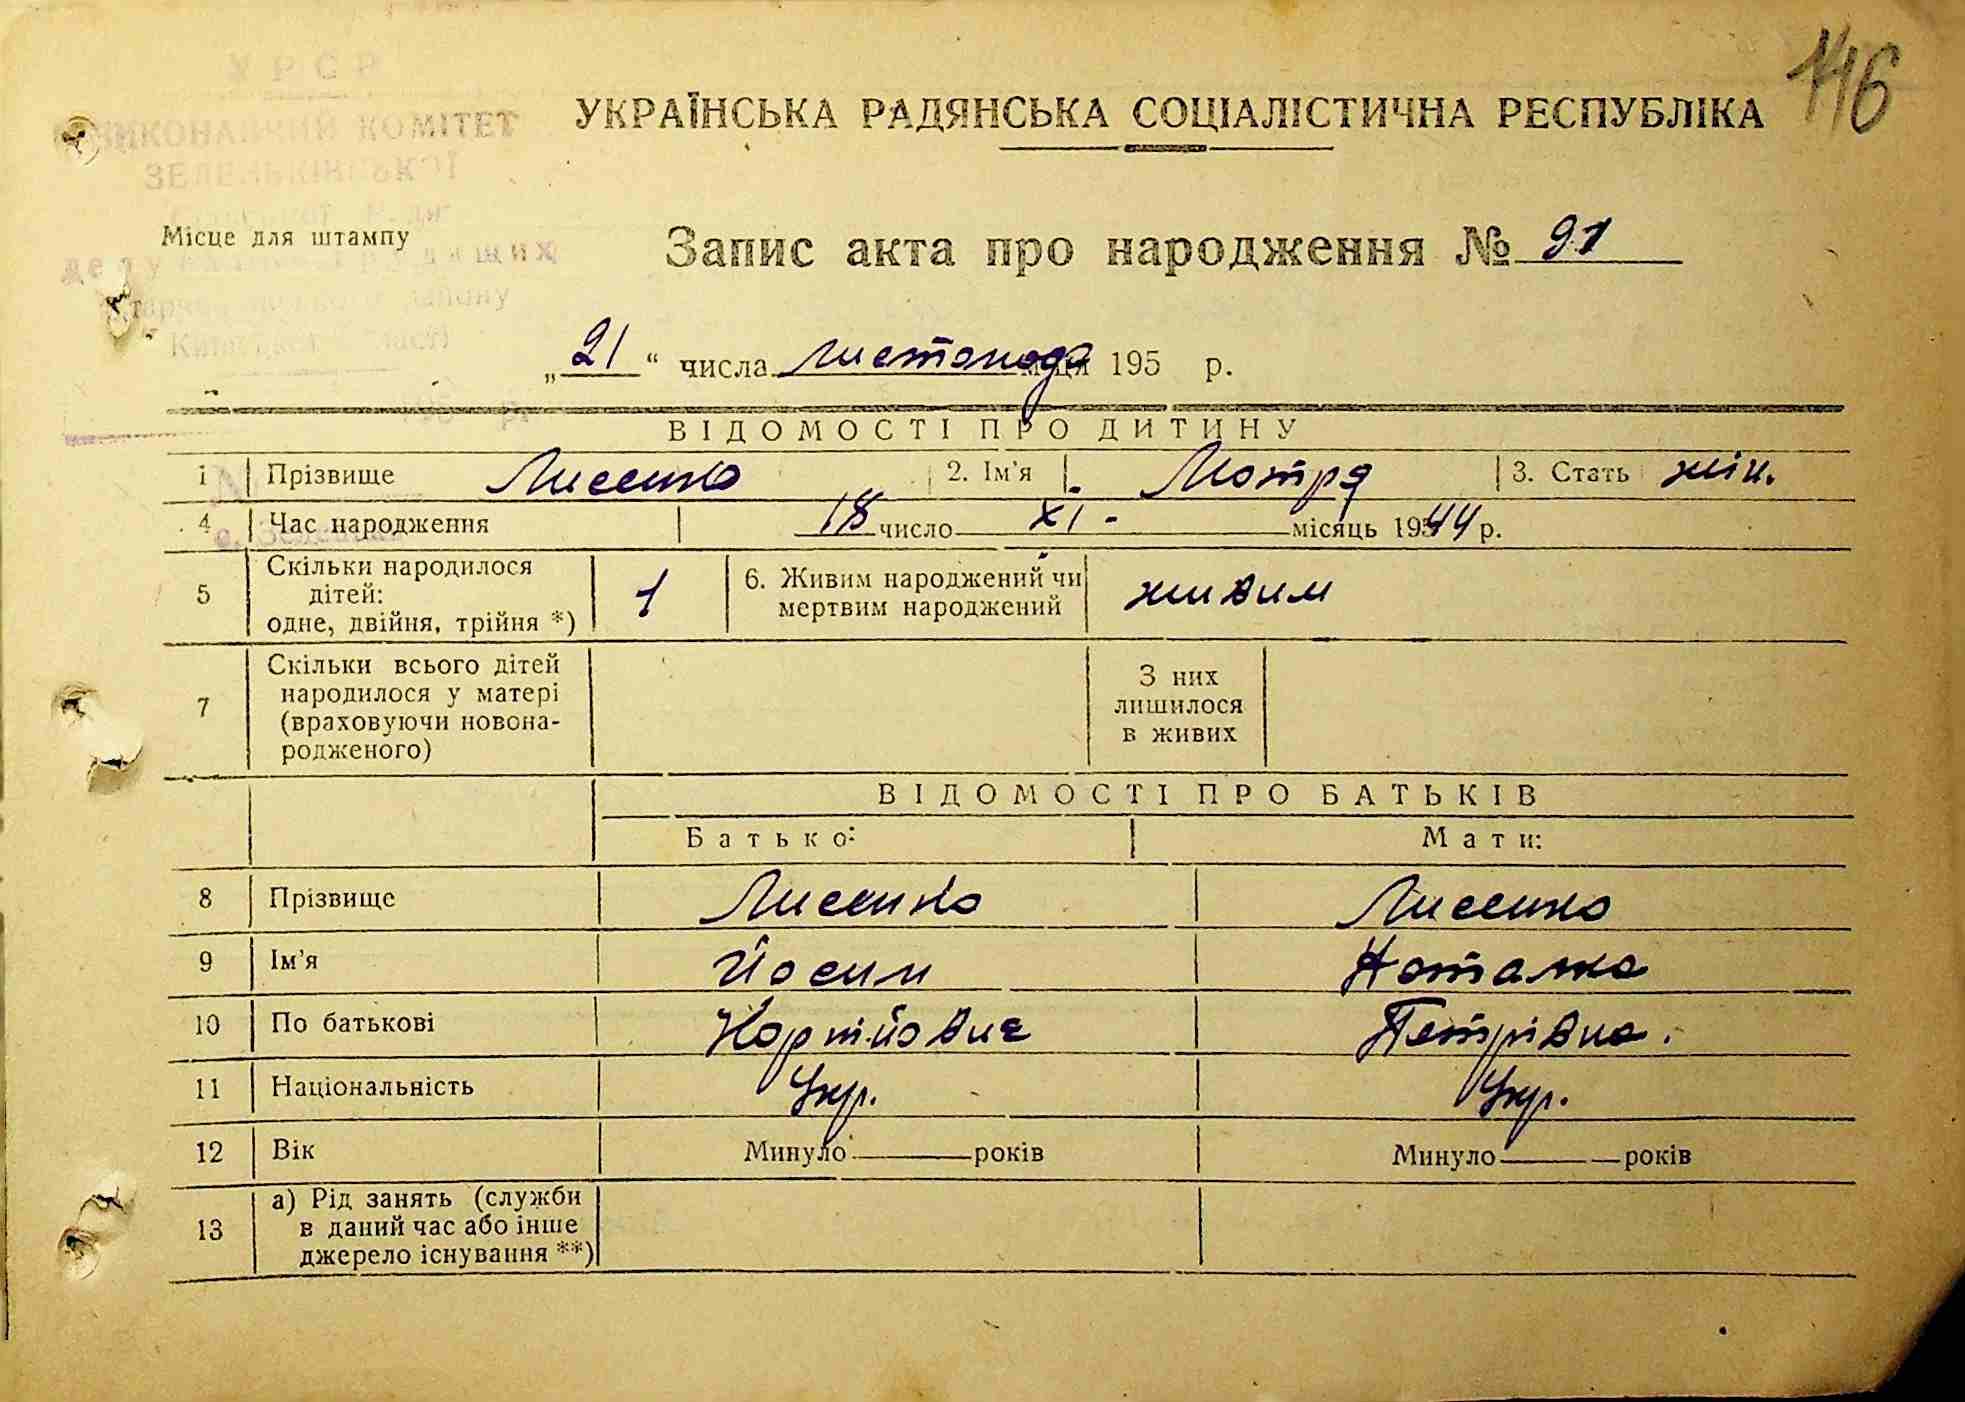 УРСР
ВИКОНАВЧИЙ КОМІТЕТ
ЗЕЛЕНЬКІВСЬКОЇ
Київської області
116
УКРАЇНСЬКА РАДЯНСЬКА СОЦІАЛІСТИЧНА РЕСПУБЛІКА
Місце для штампу
Запис акта про народження № 91
„21“ числа листопада м-ця 195 р.
ВІДОМОСТІ ПРО ДИТИНУ
1 Прізвище Лисенко 2. Ім'я Мотря 3. Стать жін.
4 Час народження 18 число XI місяць 1944 р.
5 Скільки народилося дітей: одне, двійня, трійня *) 1 6. Живим народжений чи мертвим народжений живим
7 Скільки всього дітей народилося у матері (враховуючи новонародженого) З них лишилося в живих
ВІДОМОСТІ ПРО БАТЬКІВ
Батько: Мати:
8 Прізвище Лисенко Лисенко
9 Ім'я Йосип Наталка
10 По батькові Петрівна.
11 Національність Укр. Укр.
12 Вік Минуло років Минуло років
13 а) Рід занять (служби в даний час або інше джерело існування **)